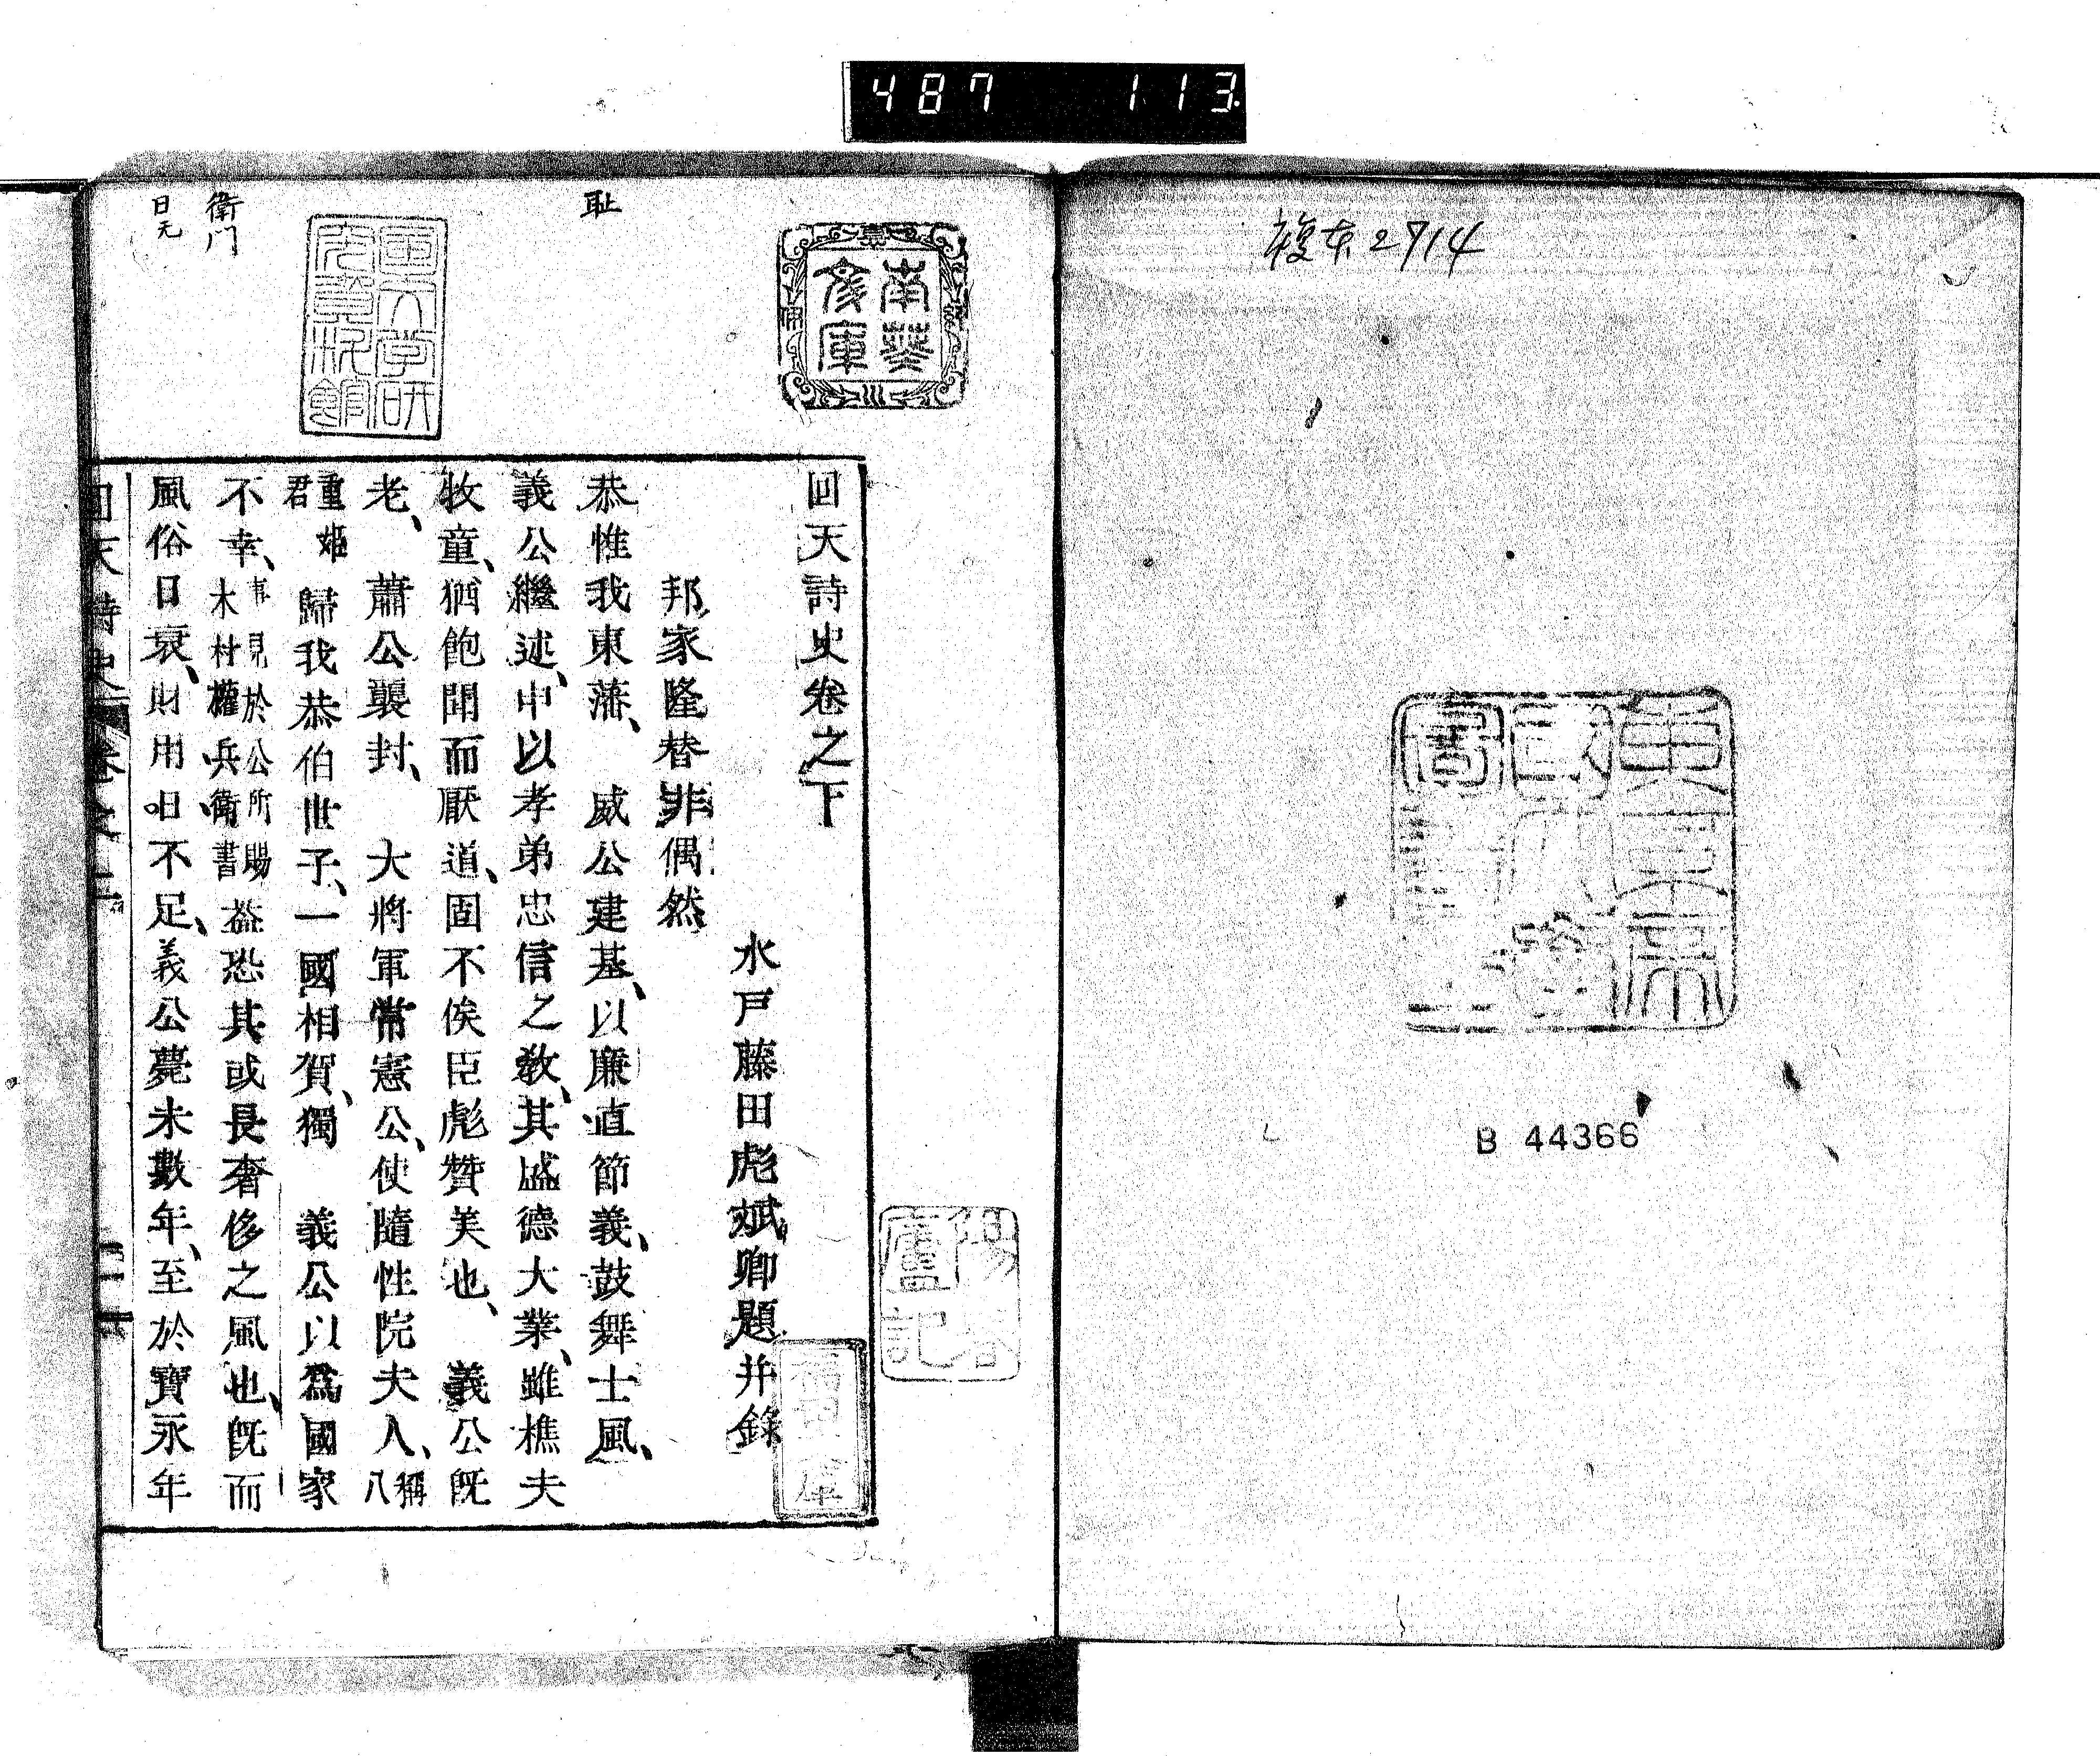 487 113
複本2714
B 44366
南葵文庫
陽春廬記
恥
衛門
日元
回天詩史卷之下
水戸藤田彪斌卿題并錄
邦家隆替非偶然
恭惟我東藩、威公建基、以廉直節義、鼓舞士風、
義公繼述、申以孝弟忠信之敎、其盛德大業、雖樵夫
牧童、猶飽聞而厭道、固不俟臣彪贊美也、義公旣
老、蕭公襲封、大將軍常憲公、使隨性院夫人、稱八
重姬君歸我恭伯世子、一國相賀、獨義公以爲國家
不幸、事見於公所賜木村權兵衛書蓋恐其或長奢侈之風也、旣而
風俗日衰、財用日不足、義公薨未數年、至於寶永年
回天詩史 卷之下